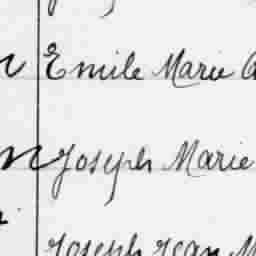 Emile Marie
Joseph Marie
Joseph Jean